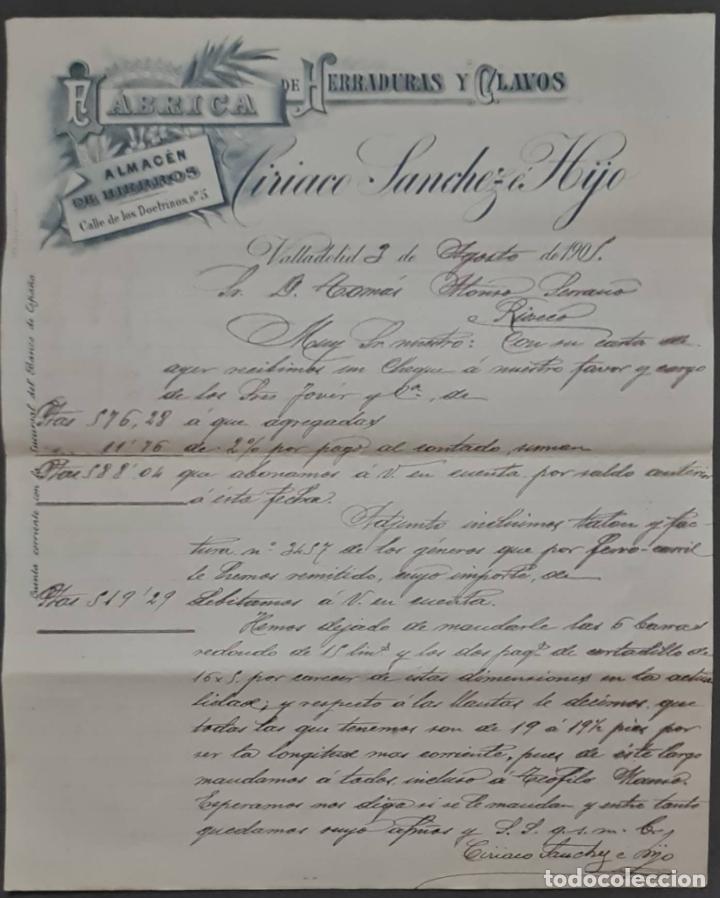 FÁBRICA DE HERRADURAS Y CLAVOS
ALMACÉN
DE HIERROS
Calle de los Doctrinos, nº 5
Ciriaco Sanchez é Hijo
Valladolid 3 de Agosto de 1905.
Sr. D. Tomás Alonso Serrano
Rioseco
Muy Sr. nuestro: Con su carta de
ayer recibimos un Cheque á nuestro favor y cargo
de los Sres Jovér y Cª, de
Ptas 576,28 á que agregadas
" 11'76 de 2% por pago al contado, suman
Ptas 588'04 que abonamos á V. en cuenta por saldo anterior
á esta fecha.
Adjunto incluimos talon y fac-
tura nº 3457 de los géneros que por ferro-carril
le hemos remitido, cuyo importe, de
Ptas 519'29 debitamos á V. en cuenta.
Hemos dejado de mandarle las 6 barras
redondo de 15 lin.s y los dos paq.s de cortadillo de
16x5, por carecer de estas dimensiones en la actua-
lidad; y respecto á las llantas le decimos que
todas las que tenemos son de 19 á 19½ pies por
ser la longitud mas corriente, pues de este largo
mandamos á todos, incluso á Teófilo Alonso.
Esperamos nos diga si se le mandan y entre tanto
quedamos suyo afmos y S. S. q. s. m. b,
Ciriaco Sanchez e Hijo
Cuenta corriente con la Sucursal del Banco de España
todocoleccion.net